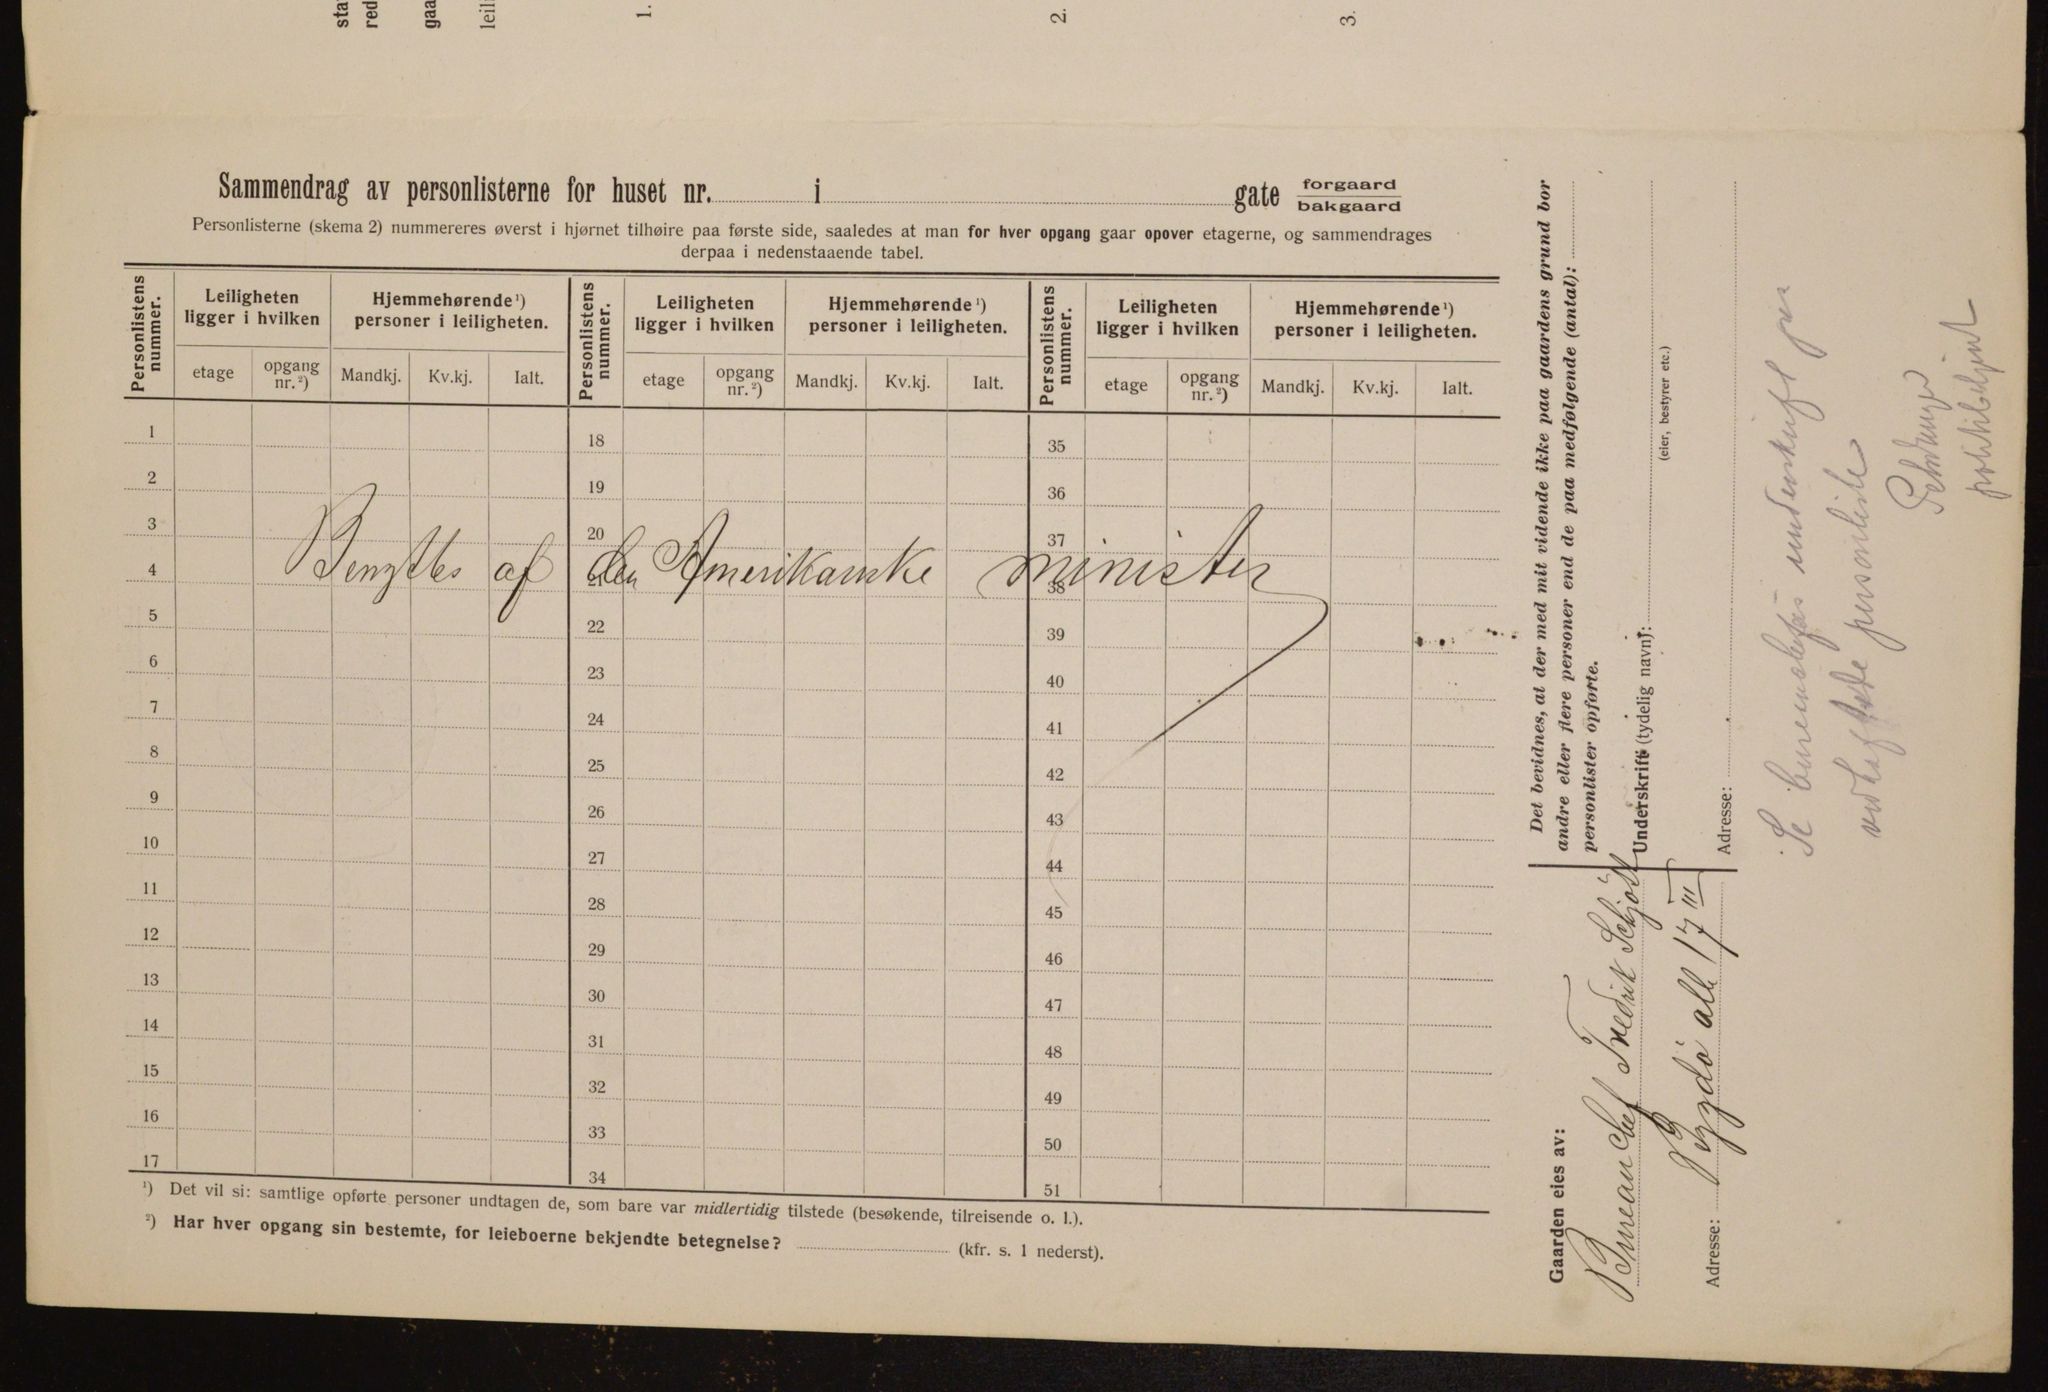 sta
red
gaa
leil
1.
2.
3.
Sammendrag av personlisterne for huset nr. i gate forgaard bakgaard
Personlisterne (skema 2) nummereres øverst i hjørnet tilhøire paa første side, saaledes at man for hver opgang gaar opover etagerne, og sammendrages
derpaa i nedenstaaende tabel.
Personlistens nummer. Leiligheten ligger i hvilken Hjemmehørende ¹) personer i leiligheten. Personlistens nummer. Leiligheten ligger i hvilken Hjemmehørende ¹) personer i leiligheten. Personlistens nummer. Leiligheten ligger i hvilken Hjemmehørende ¹) personer i leiligheten.
etage opgang nr. ²) Mandkj. Kv.kj. Ialt. etage opgang nr. ²) Mandkj. Kv.kj. Ialt. etage opgang nr. ²) Mandkj. Kv.kj. Ialt.
1 18 35
2 19 36
3 20 37
Benyttes af den Amerikanske minister
4 21 38
5 22 39
6 23 40
7 24 41
8 25 42
9 26 43
10 27 44
11 28 45
12 29 46
13 30 47
14 31 48
15 32 49
16 33 50
17 34 51
¹) Det vil si: samtlige opførte personer undtagen de, som bare var midlertidig tilstede (besøkende, tilreisende o. l.).
²) Har hver opgang sin bestemte, for leieboerne bekjendte betegnelse? (kfr. s. 1 nederst).
Gaarden eies av:
Bureauchef Fredrik Schjött
Adresse: Bygdö allé 17 III
Det bevidnes, at der med mit vidende ikke paa gaardens grund bor
andre eller flere personer end de paa medfølgende (antal):
personlister opførte.
Underskrift (tydelig navn):
(eier, bestyrer etc.)
Adresse:
Se bureauchefens underskrift paa
vedhæftede personliste
politibetjent